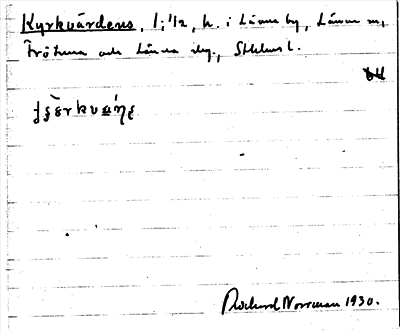 Kyrkvärdens, 1; 1/2, h. i Länna by, Länna sn,
Frötuna och Länna skg, Sthlms l.
Richard Norrman 1930.